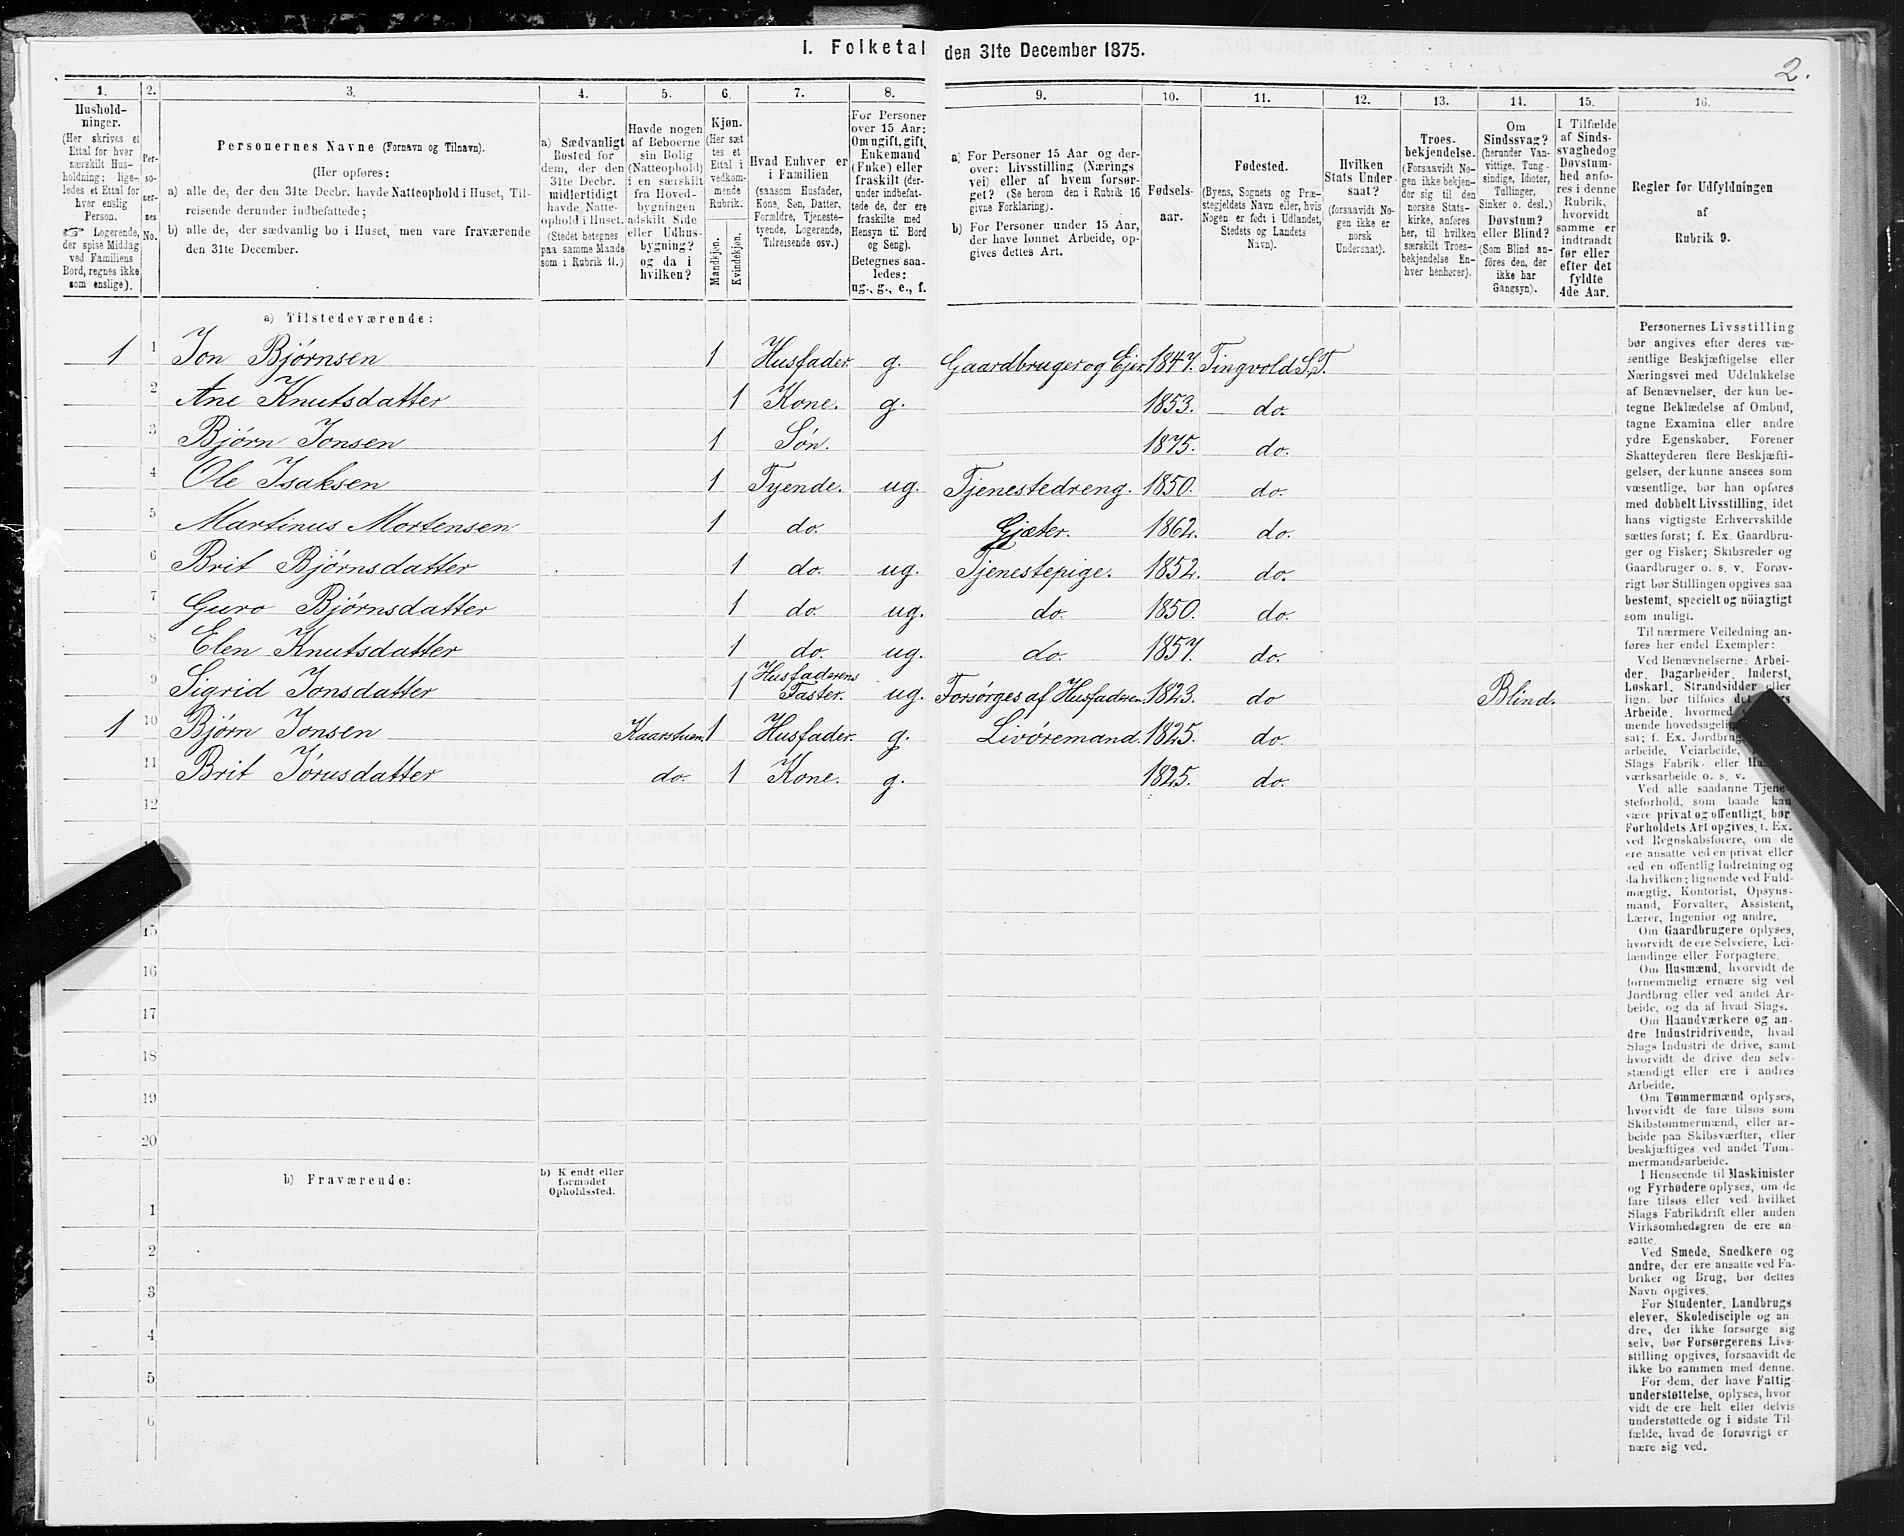 I. Folketal den 31te December 1875.
2.
1.
Hushold-
ninger.
(Her skrives et
Ettal for hver
særskilt Hus-
holdning; lige-
ledes et Ettal for
hver enslig
Person.
☞ Logerende,
der spise Middag
ved Familiens
Bord, regnes ikke
som enslige).
2.
Per-
so-
ner-
nes
No.
3.
Personernes Navne (Fornavn og Tilnavn).
(Her opføres:
a) alle de, der den 31te Decbr. havde Natteophold i Huset, Til-
reisende derunder indbefattede;
b) alle de, der sædvanlig bo i Huset, men vare fraværende
den 31te December.
4.
a) Sædvanligt
Bosted for
dem, der den
31te Decbr.
midlertidigt
havde Natte-
ophold i Huset.
(Stedet betegnes
paa samme Maade
som i Rubrik 11.)
5.
Havde nogen
af Beboerne
sin Bolig
(Natteophold)
i en særskilt
fra Hoved-
bygningen
adskilt Side
eller Udhus-
bygning?
og da i
hvilken?
6.
Kjøn.
(Her sæt-
tes et
Ettal i
vedkom-
mende
Rubrik.)
Mandkjøn.
Kvindekjøn.
7.
Hvad Enhver er
i Familien
(saasom Husfader,
Kone, Søn, Datter,
Forældre, Tjeneste-
tyende, Logerende,
Tilreisende osv.)
8.
For Personer
over 15 Aar:
Om ugift, gift,
Enkemand
(Enke) eller
fraskilt (der-
under indbefat-
tede de, der ere
fraskilte med
Hensyn til Bord
og Seng).
Betegnes saa-
ledes:
ug., g., e., f.
9.
a) For Personer 15 Aar og der-
over: Livsstilling (Nærings-
vei) eller af hvem forsør-
get? (Se herom den i Rubrik 16
givne Forklaring).
b) For Personer under 15 Aar,
der have lønnet Arbeide, op-
gives dettes Art.
10.
Fødsels-
aar.
11.
Fødested.
(Byens, Sognets og Præ-
stegjeldets Navn eller, hvis
Nogen er født i Udlandet,
Stedets og Landets
Navn).
12.
Hvilken
Stats Under-
saat?
(forsaavidt No-
gen ikke er
norsk
Undersaat).
13.
Troes-
bekjendelse.
(Forsaavidt No-
gen ikke bekjen-
der sig til den
norske Stats-
kirke, anføres
her, til hvilken
særskilt Troes-
bekjendelse En-
hver henhører).
14.
Om
Sindssvag?
(herunder Van-
vittige, Tung-
sindige, Idioter,
Tullinger,
Sinker o. desl.)
Døvstum?
eller Blind?
(Som Blind an-
føres den, der
ikke har
Gangsyn).
15.
I Tilfælde
af Sinds-
svaghed og
Døvstum-
hed anfø-
res i denne
Rubrik,
hvorvidt
samme er
indtraadt
før eller
efter det
fyldte
4de Aar.
16.
Regler for Udfyldningen
af
Rubrik 9.
a) Tilstedeværende:
1 1 Jon Bjørnsen 1 Husfader. g. Gaardbruger og Ejer 1847. Tingvold S.T.
2 Ane Knutsdatter 1 Kone. g. 1853. do.
3 Bjørn Jonsen 1 Søn. 1875. do.
4 Ole Isaksen 1 Tyende. ug. Tjenestedreng. 1850. do.
5 Martinus Mortensen 1 do. Gjæter. 1862. do.
6 Brit Bjørnsdatter 1 do. ug. Tjenestepige. 1852. do.
7 Guro Bjørnsdatter 1 do. ug. do. 1850. do.
8 Elen Knutsdatter 1 do. ug. do. 1857. do.
9 Sigrid Jonsdatter 1 Husfaderens Faster. ug. Forsørges af Husfaderen 1823. do Blind.
1 10 Bjørn Jonsen Kaarstuen. 1 Husfader. g. Livøremand. 1825. do.
11 Brit Jørusdatter do. 1 Kone. g. 1825. do.
12
15
16
17
18
19
20
b) Fraværende:
b) Kjendt eller
formodet
Opholdssted.
1
2
3
4
5
6
Personernes Livsstilling
bør angives efter deres væ-
sentlige Beskjæftigelse eller
Næringsvei med Udelukkelse
af Benævnelser, der kun be-
tegne Beklædelse af Ombud,
tagne Examina eller andre
ydre Egenskaber. Forener
Skatteyderen flere Beskjæfti-
gelser, der kunne ansees som
væsentlige, bør han opføres
med dobbelt Livsstilling, idet
hans vigtigste Erhvervskilde
sættes først; f. Ex. Gaardbru-
ger og Fisker; Skibsreder og
Gaardbruger o. s. v. Forøv-
rigt bør Stillingen opgives saa
bestemt, specielt og nöiagtigt
som muligt.
Til nærmere Veiledning an-
føres her endel Exempler:
Ved Benævnelserne: Arbei-
der, Dagarbeider, Inderst,
Løskarl, Strandsidder eller
lign. bør tilføies
Arbeide, hvormed
mende hovedsagelig
sat; f. Ex. Jordbrug
arbeide, Veiarbeide,
Slags Fabrik- eller
værksarbeide o. s. v.
Ved alle saadanne Tjene-
steforhold, som baade kan
være privat og offentligt, bør
Forholdets Art opgives, t. Ex.
ved Regnskabsførere, om de
ere ansatte ved en privat eller
ved en offentlig Indretning og
da hvilken; lignende ved Fuld-
mægtig, Kontorist, Opsyns-
mand, Forvalter, Assistent,
Lærer, Ingeniør og andre.
Om Gaardbrugere oplyses,
hvorvidt de ere Selveiere, Lei-
lændinge eller Forpagtere.
Om Husmænd, hvorvidt de
fornemmelig ernære sig ved
Jordbrug eller ved andet Ar-
beide, og da af hvad Slags.
Om Haandværkere og an-
dre Industridrivende, hvad
Slags Industri de drive, samt
hvorvidt de drive den selv-
stændigt eller ere i andres
Arbeide.
Om Tømmermænd oplyses,
hvorvidt de fare tilsøs som
Skibstømmermænd, eller ar-
beide paa Skibsværfter, eller
beskjæftiges ved andet Tøm-
mermandsarbeide.
I Henseende til Maskinister
og Fyrbødere oplyses, om de
fare tilsøs eller ved hvilket
Slags Fabrikdrift eller anden
Virksomhedsgren de ere an-
satte.
Ved Smede, Snedkere og
andre, der ere ansatte ved Fa-
briker og Brug, bør dettes
Navn opgives.
For Studenter, Landbrugs-
elever, Skoledisciple og an-
dre, der ikke forsørge sig
selv, bør Forsørgerens Livs-
stilling opgives, forsaavidt de
ikke bo sammen med denne.
For dem, der have Fattig-
understøttelse, oplyses, hvor-
vidt de ere helt eller delvis
understøttede og i sidste Til-
fælde, hvad de forøvrigt er-
nære sig ved.